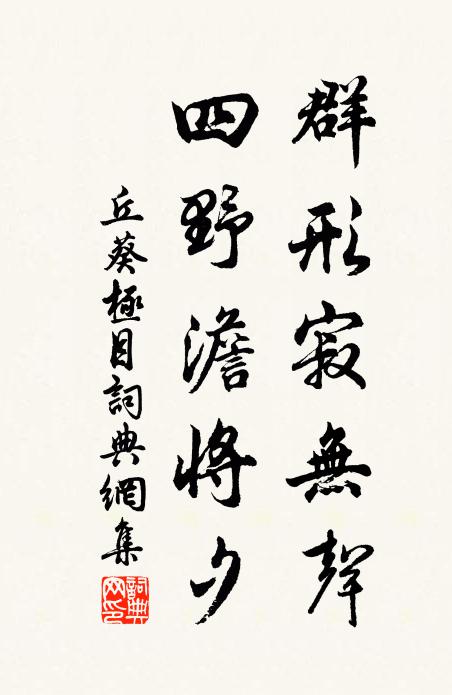 群形寂無聲
四野澹將夕
丘葵極目詞典網集
詞典網印